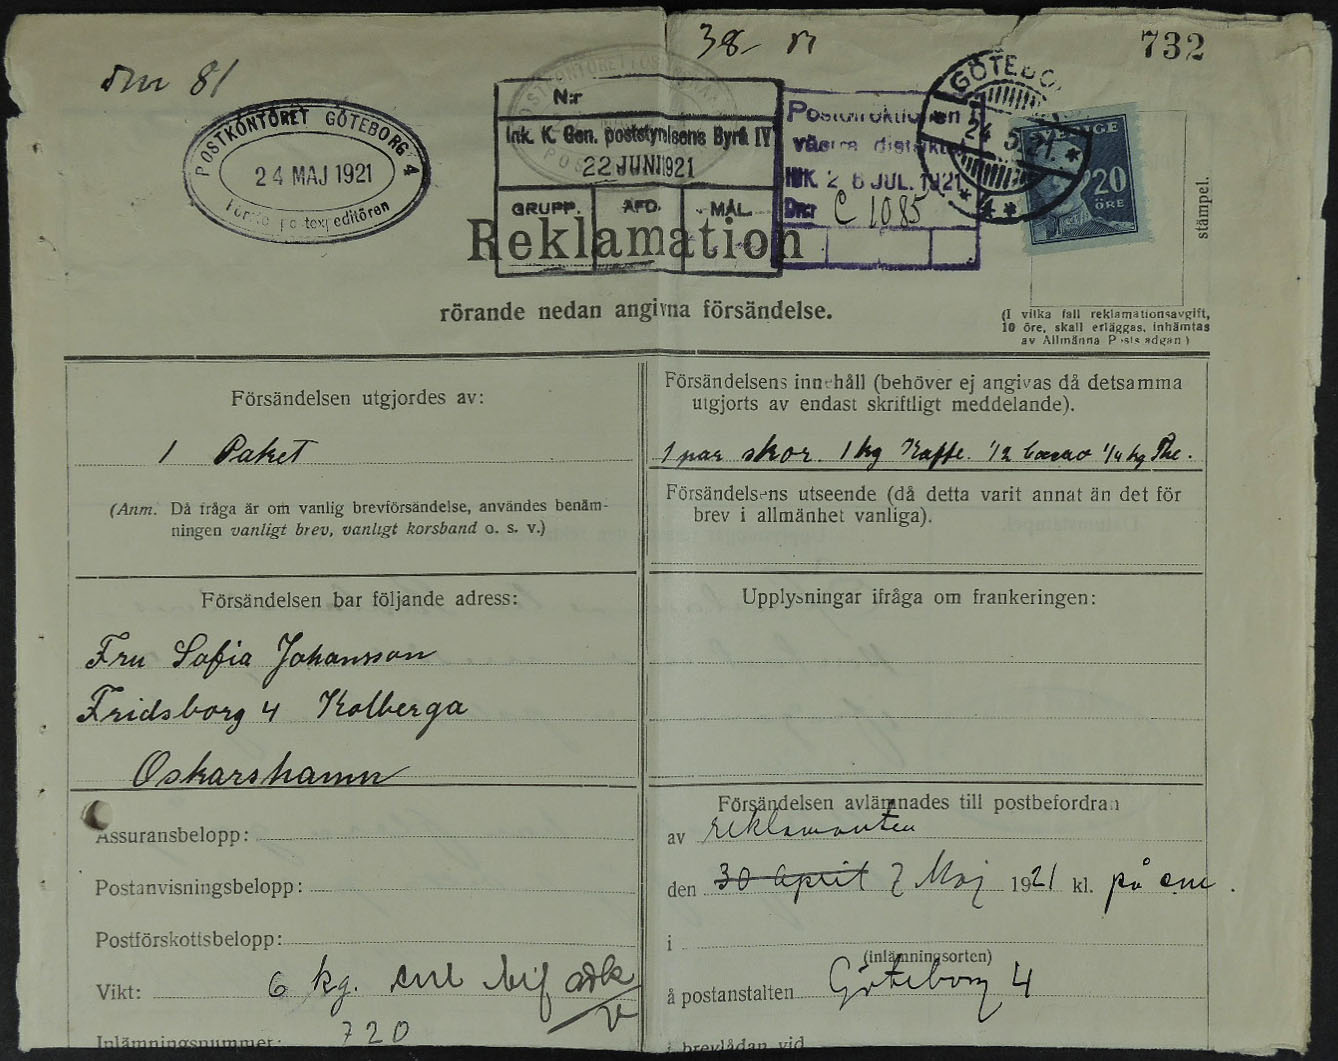 38-
732
dnr 81
POSTKONTORET GÖTEBORG 4
24 MAJ 1921
N:r
Ink. K. Gen. poststyrelsens Byrå IV
22 JUNI 1921
GRUPP. AFD. MÅL.
Postdirektionen
västra distriktet
INK. 26 JUL. 1921
Dnr C 1085
GÖTEBORG
24.5.21.
* 4 *
SVERIGE
20
ÖRE
stämpel.
Reklamation
rörande nedan angivna försändelse.
(I vilka fall reklamationsavgift,
10 öre, skall erläggas, inhämtas
av Allmänna Poststadgan)
Försändelsen utgjordes av:
1 Paket
(Anm. Då fråga är om vanlig brevförsändelse, användes benäm-
ningen vanligt brev, vanligt korsband o. s. v.)
Försändelsens innehåll (behöver ej angivas då detsamma
utgjorts av endast skriftligt meddelande).
1 par skor. 1 kg Kaffe. 1/2 Cacao 1/4 kg The.
Försändelsens utseende (då detta varit annat än det för
brev i allmänhet vanliga).
Försändelsen bar följande adress:
Fru Sofia Johansson
Fridsborg 4 Kolberga
Oskarshamn
Upplysningar ifråga om frankeringen:
Assuransbelopp:
Postanvisningsbelopp:
Postförskottsbelopp:
Vikt: 6 kg. enl
Inlämningsnummer: 720
Försändelsen avlämnades till postbefordran
av reklamanten
den 30 April 7 Maj 1921 kl. på em.
i
(inlämningsorten)
å postanstalten Göteborg 4
i brevlådan vid